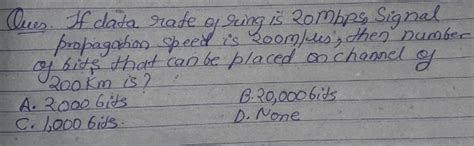 Ques. If data rate of ring is 20Mbps, Signal
propagation speed is 200m/us, then number
of bits that can be placed on channel of
200Km is?
A. 2000 bits B. 20,000 bits
C. 1,000 bits. D. None